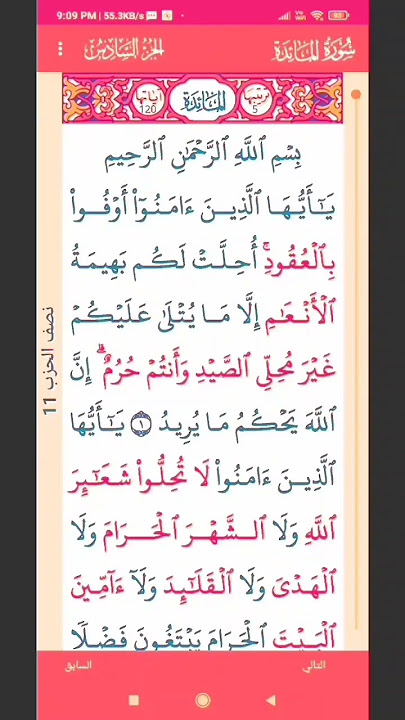 9:09 PM | 55.3KB/s
93
الجزء السادس
سُورَةُ المَائدَة
آياتها 120
المَائدَة
رتبتها 5
بِسْمِ ٱللَّهِ ٱلرَّحْمَٰنِ ٱلرَّحِيمِ
يَـٰٓأَيُّهَا ٱلَّذِينَ ءَامَنُوٓا۟ أَوْفُوا۟
بِٱلْعُقُودِ ۚ أُحِلَّتْ لَكُم بَهِيمَةُ
ٱلْأَنْعَـٰمِ إِلَّا مَا يُتْلَىٰ عَلَيْكُمْ
غَيْرَ مُحِلِّى ٱلصَّيْدِ وَأَنتُمْ حُرُمٌ ۗ إِنَّ
ٱللَّهَ يَحْكُمُ مَا يُرِيدُ ١ يَـٰٓأَيُّهَا
ٱلَّذِينَ ءَامَنُوا۟ لَا تُحِلُّوا۟ شَعَـٰٓئِرَ
ٱللَّهِ وَلَا ٱلشَّهْرَ ٱلْحَرَامَ وَلَا
ٱلْهَدْىَ وَلَا ٱلْقَلَـٰٓئِدَ وَلَآ ءَآمِّينَ
ٱلْبَيْتَ ٱلْحَرَامَ يَبْتَغُونَ فَضْلًا
نصف الحزب 11
السابق
التالي